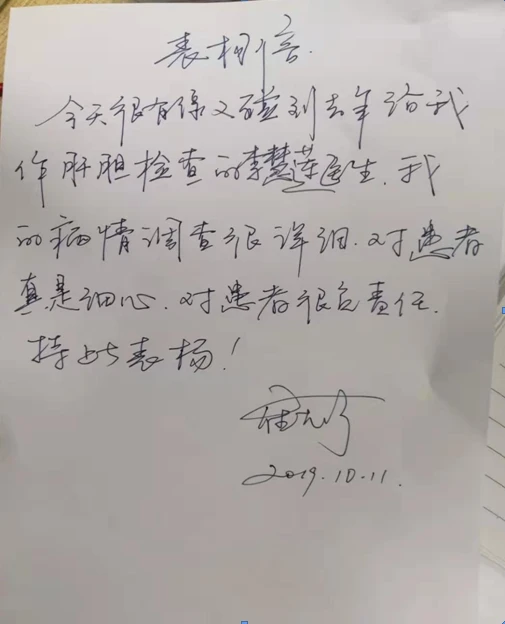 表扬信
今天很有缘又碰到去年给我
作肝胆检查的李慧莲医生.我
的病情调查很详细.对患者
真是细心.对患者很负责任.
特此表扬!
2019.10.11.